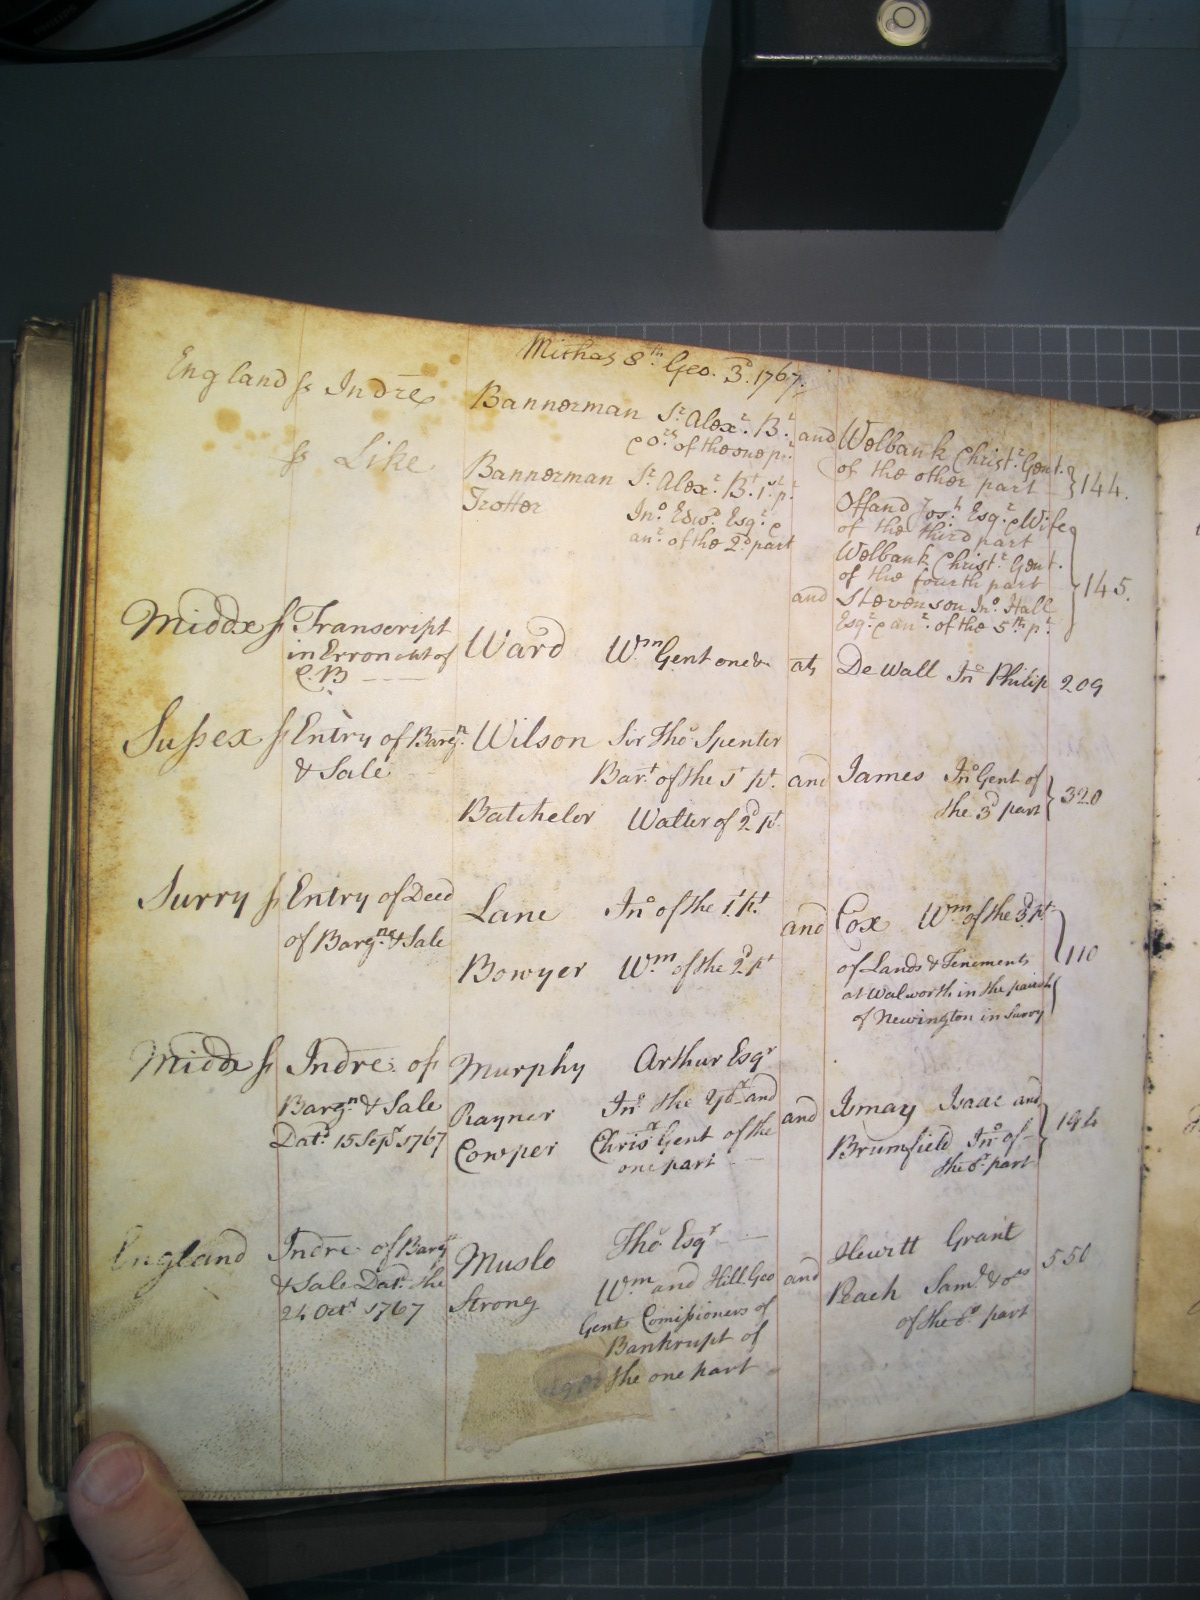 Michas 8th. Geo. 3d. 1767.
England ss Indre Bannerman Sr. Alexr. Bt. and Welbank Christr. Gent.
& ors. of the one pt. of the other part 144.
ss Like Bannerman Sr. Alexr. Bt. 1st. pt. Offand Josh. Esqr. & Wife
Trotter Jno. Edwd. Esqr. & of the third part
anr. of the 2d part Welbank Christr. Gent.
of the fourth part 145.
and Stevenson Jno. Hall
Esqr. & anr. of the 5th pt.
Middx ss Transcript Ward Wm Gent one &c at De Wall Jno Philip 209
in Error out of
C. B
Sussex ss Entry of Bargn. Wilson Sir Tho Spencer
& Sale Bart. of the 1t pt. and James Jno Gent of
Batchelor Walter of 2d pt. the 3d part 320
Surry ss Entry of Deed Lane Jno of the 1t. pt. and Cox Wm. of the 3d pt
of Bargn. & Sale Bowyer Wm. of the 2d. pt of Lands & Tenements 110
at Walworth in the parish
of Newington in Surry
Middx ss Indre. of Murphy Arthur Esqr
Bargn & Sale Rayner Jno. the Yor. and and Ismay Isaac and
Datd. 15 Sepr 1767 Cowper Chrisr Gent of the Brumfield Jno of 194
one part the or. part
England Indre of Barg Muslo Tho Esqr Hewitt Grant
& Sale Datd. the Strong Wm and Hill Geo and Peach Saml. & ors 550
24 Octr 1767 Gent Comissioners of of the or part
Bankrupt of
the one part